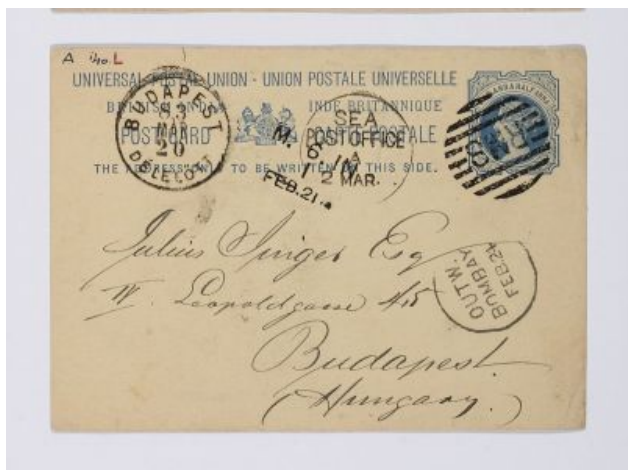 A L
UNIVERSAL POSTAL UNION - UNION POSTALE UNIVERSELLE
BRITISH INDIA INDE BRITANNIQUE
POST CARD CARTE POSTALE
THE ADDRESS ONLY TO BE WRITTEN ON THIS SIDE.
BUDAPEST
83
MAR
20
DÉLELŐTT
M.
6
FEB.21.
SEA
POST OFFICE
A
2 MAR.
ANNA & HALF ANNA
OUTW.
BOMBAY
FEB.24
Julius Singer Esq
IV. Leopoldgasse 45
Budapest
(Hungary.)